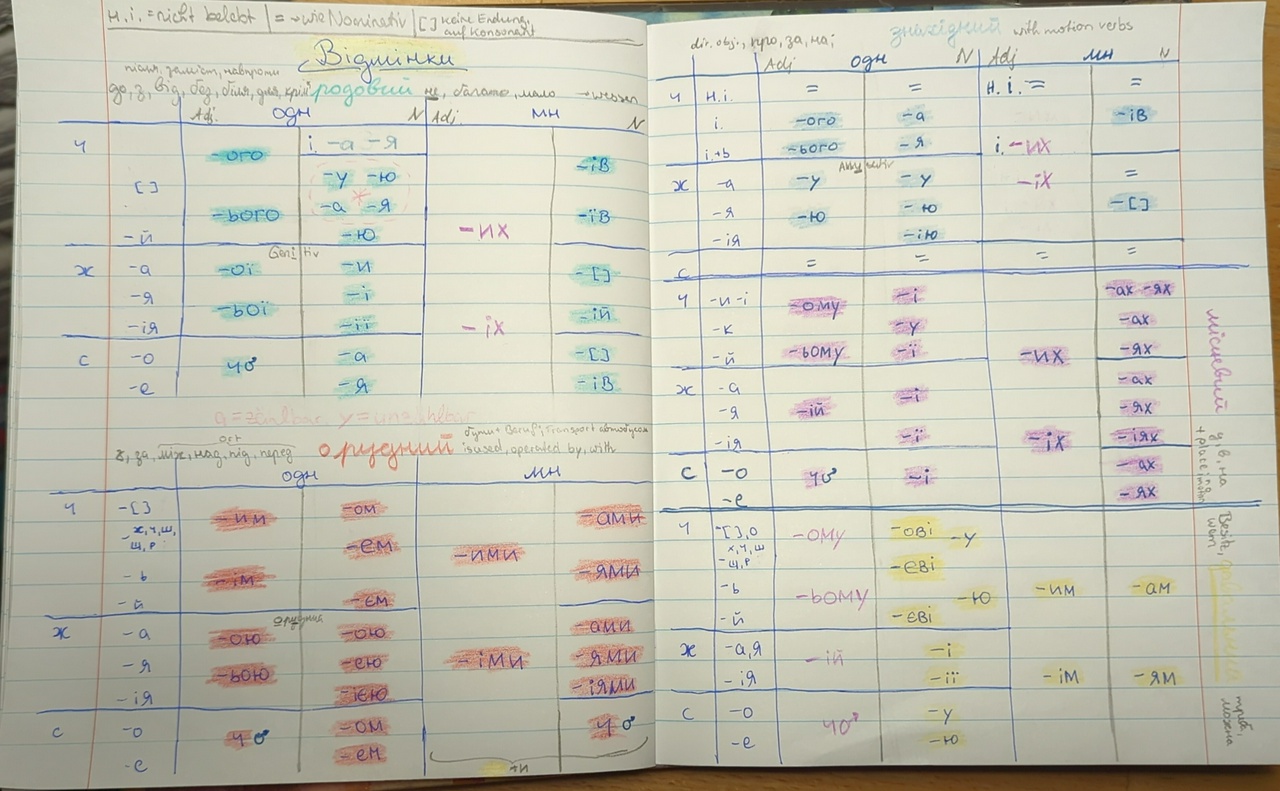 н.i. = nicht belebt | = → wie Nominativ | [ ] keine Endung, auf Konsonant
Відмінки
після, замість, навпроти
до, з, від, без, біля, для, крім родовий не, багато, мало → wessen
Adj. одн N Adj. мн N
ч -ого і. -а -я -ів
[ ] -у -ю
* -а -я
-ього -їв
-й -ю -их
Genitiv
ж -а -ої -и -[ ]
-я -ьої -і
-ія -ії -іх -ій
с -о ч♂ -а -[ ]
-е -я -ів
a = zählbar y = unzählbar
орт бути + Beruf; Transport автобусом
з, за, між, над, під, перед орудний is used, operated by, with
одн мн
ч -[ ] -им -ом -ами
-ж, ч, ш, щ, р -ем -ими
-ь -ім -ями
-й -єм
ж -а -ою -ою -ами
-я -ьою -ею -іми -ями
-ія -ією -іями
с -о ч♂ -ом ч♂
-е -ем
+и
dir. obj., про, за, на; знахідний with motion verbs
Adj одн N Adj мн N
ч н.і. = = н.і. = =
і. -ого -а -ів
і.+ь -ього -я і. -их
Akkusativ
ж -а -у -у -іх =
-я -ю -ю -[ ]
-ія -ію
с = = =
ч -и -і -ому -і -ах -ях
-к -у -ах
-й -ьому -ї -их -ях
ж -а -і -ах
-я -ій -ях
-ія -ї -іх -іях
с -о ч♂ -і -ах
-е -ях
місцевий
у, в, на
+ place
ч -[ ], о -ому -ові -у
ж, ч, ш
-щ, р -еві
-ь -ьому -ю -им -ам
-й -єві
ж -а, я -ій -і
-ія -ії -ім -ям
с -о ч♂ -у
-е -ю
Besitz, wem
треба, можна